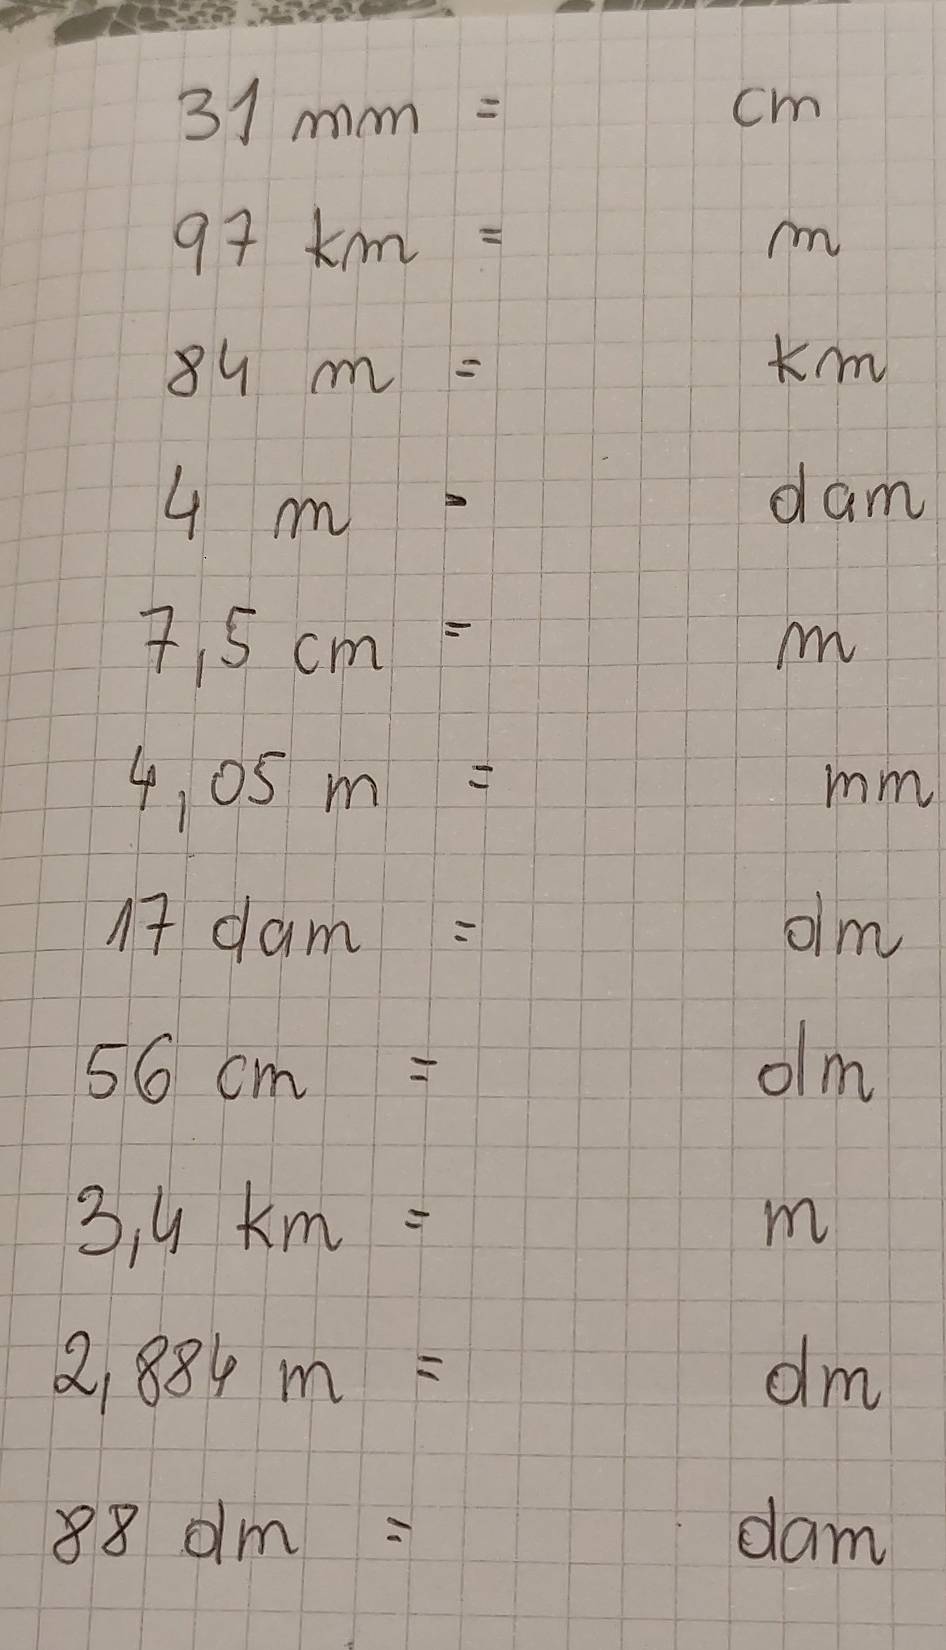 31 mm = cm
97 km = m
84 m = km
4 m = dam
7,5 cm = m
4,05 m = mm
17 dam = dm
56 cm = dm
3,4 km = m
2,884 m = dm
88 dm = dam